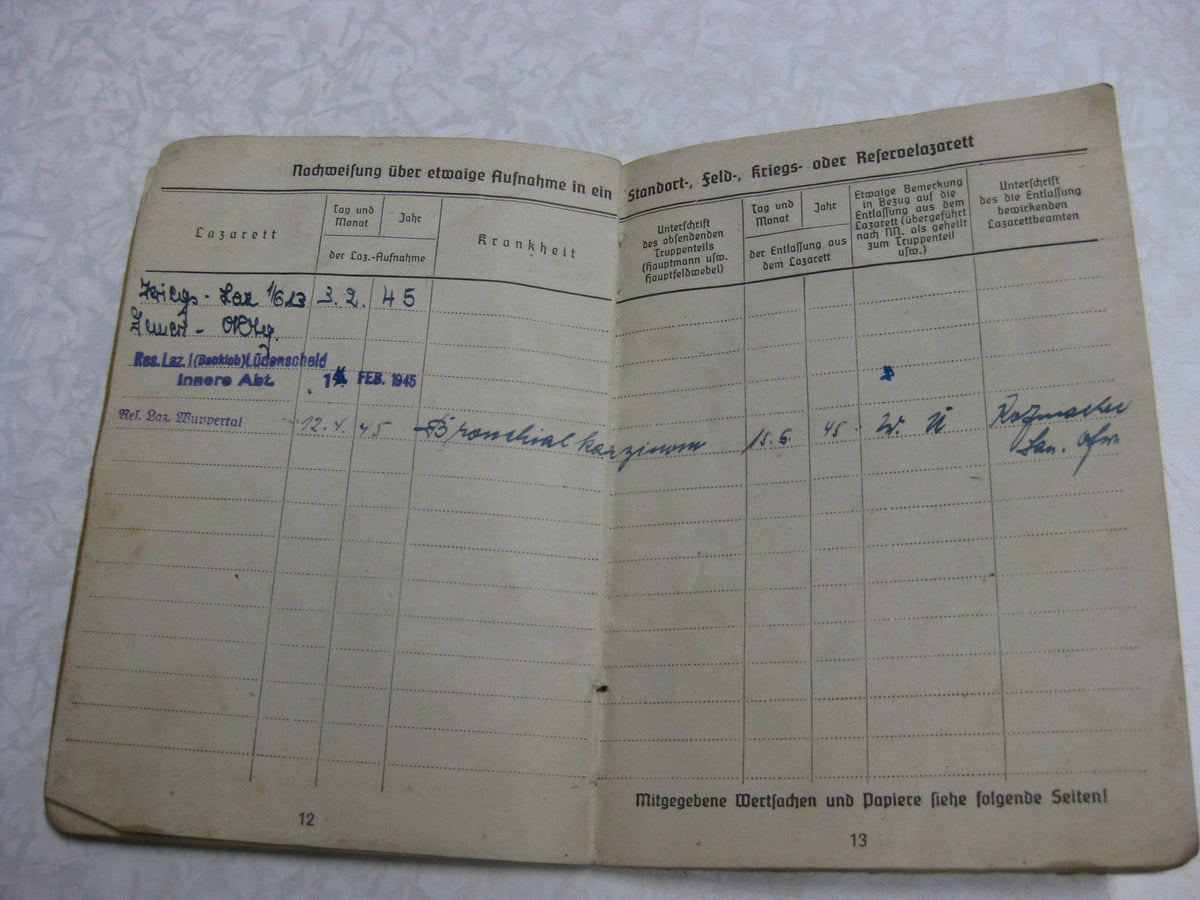 Nachweisung über etwaige Aufnahme in ein
Lazarett
Tag und
Monat
Jahr
der Laz.-Aufnahme
Krankheit
Kriegs-Laz 1/613 3. 2. 45
Res. Laz. I (Bankloh) Lüdenscheid
Innere Abt. FEB. 1945
Res. Laz. Wuppertal 12. 4. 45 Bronchialkarzinom
12
Standort-, Feld-, Kriegs- oder Reservelazarett
Unterschrift
des absendenden
Truppenteils
(Hauptmann usw.
Hauptfeldwebel)
Tag und
Monat
Jahr
der Entlassung aus
dem Lazarett
Etwaige Bemerkung
in Bezug auf die
Entlassung aus dem
Lazarett (übergeführt
nach NN. als geheilt
zum Truppenteil
usw.)
Unterschrift
des die Entlassung
bewirkenden
Lazarettbeamten
45
Mitgegebene Wertsachen und Papiere siehe folgende Seiten!
13